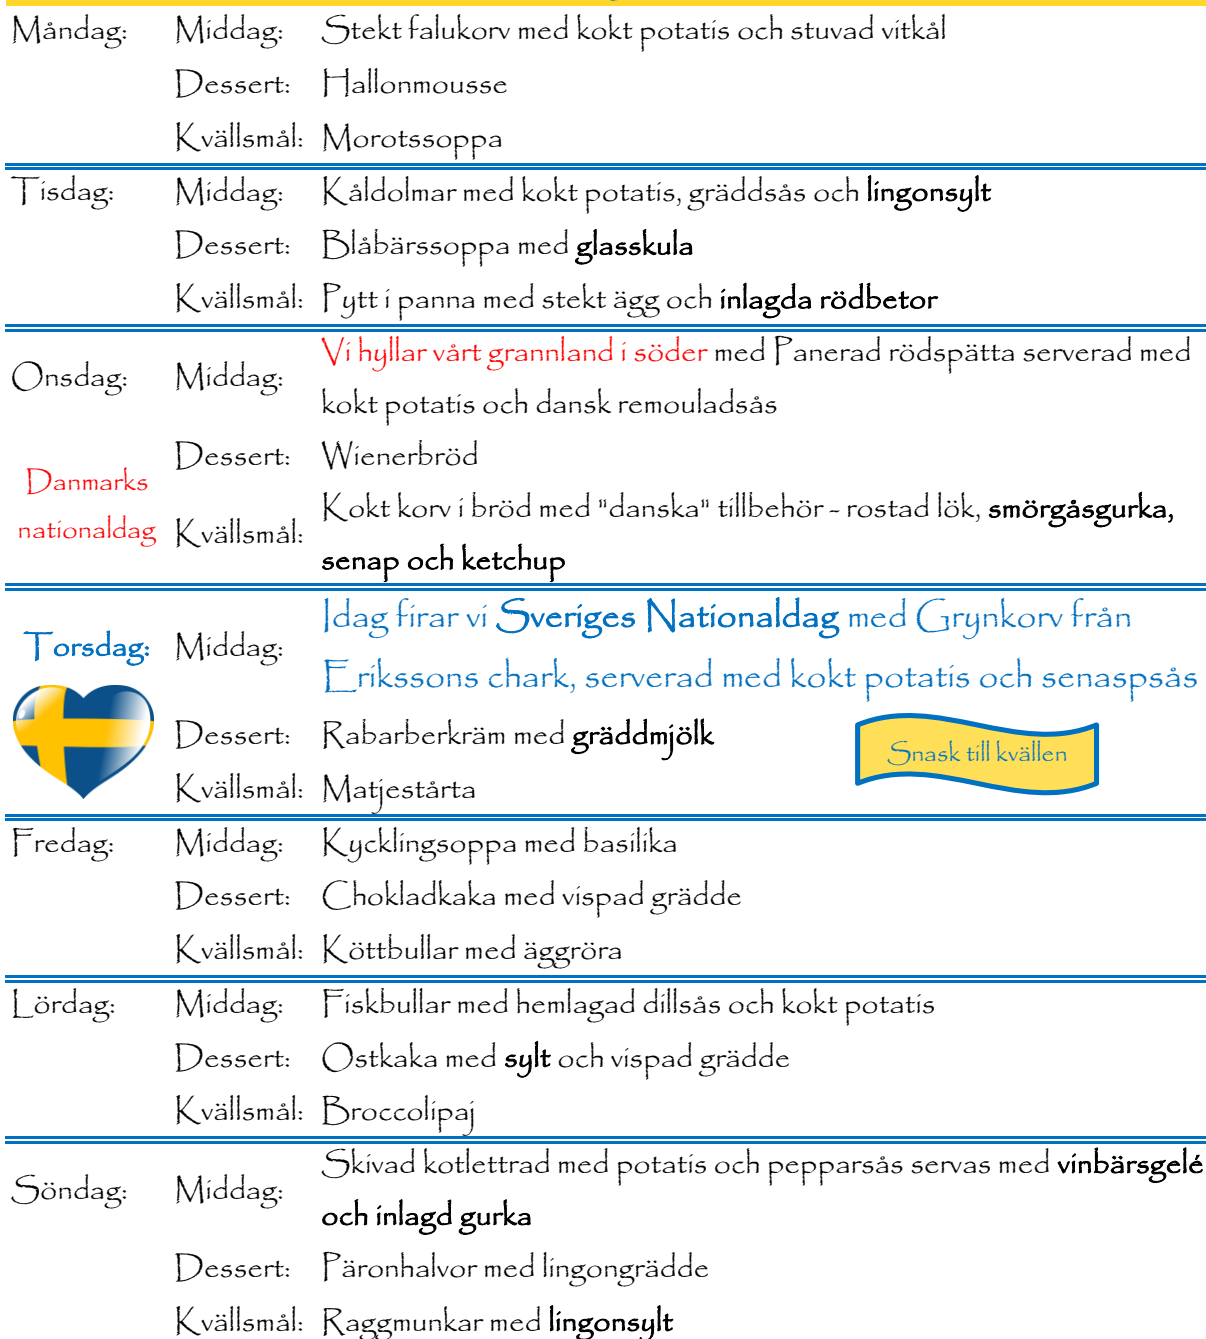 Måndag: Middag: Stekt falukorv med kokt potatis och stuvad vitkål
Dessert: Hallonmousse
Kvällsmål: Morotssoppa
Tisdag: Middag: Kåldolmar med kokt potatis, gräddsås och lingonsylt
Dessert: Blåbärssoppa med glasskula
Kvällsmål: Pytt i panna med stekt ägg och inlagda rödbetor
Onsdag: Middag: Vi hyllar vårt grannland i söder med Panerad rödspätta serverad med
kokt potatis och dansk remouladsås
Dessert: Wienerbröd
Danmarks
nationaldag
Kvällsmål: Kokt korv i bröd med "danska" tillbehör - rostad lök, smörgåsgurka,
senap och ketchup
Torsdag: Middag: Idag firar vi Sveriges Nationaldag med Grynkorv från
Erikssons chark, serverad med kokt potatis och senaspsås
Dessert: Rabarberkräm med gräddmjölk
Snask till kvällen
Kvällsmål: Matjestårta
Fredag: Middag: Kycklingsoppa med basilika
Dessert: Chokladkaka med vispad grädde
Kvällsmål: Köttbullar med äggröra
Lördag: Middag: Fiskbullar med hemlagad dillsås och kokt potatis
Dessert: Ostkaka med sylt och vispad grädde
Kvällsmål: Broccolipaj
Söndag: Middag: Skivad kotlettrad med potatis och pepparsås servas med vinbärsgelé
och inlagd gurka
Dessert: Päronhalvor med lingongrädde
Kvällsmål: Raggmunkar med lingonsylt